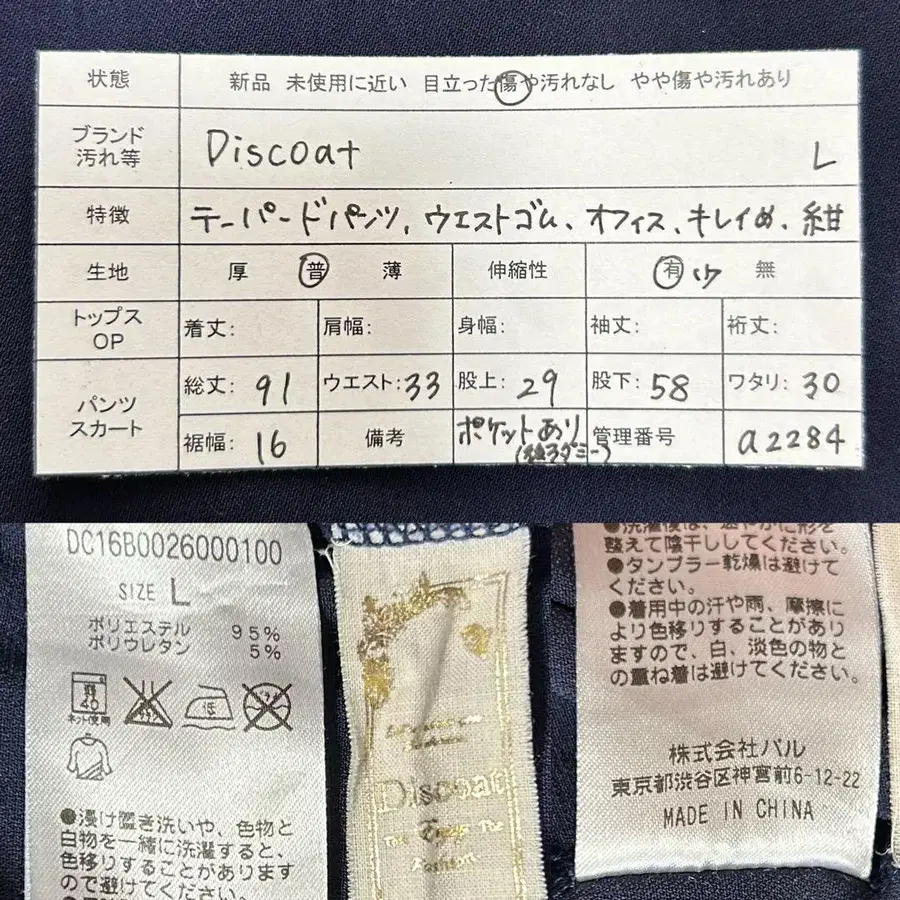 状態 新品 未使用に近い 目立った傷や汚れなし やや傷や汚れあり
ブランド
汚れ等 Discoat L
特徴 テーパードパンツ、ウエストゴム、オフィス、キレイめ、紺
生地 厚 普 薄 伸縮性 有 少 無
トップス
OP 着丈: 肩幅: 身幅: 袖丈: 裄丈:
パンツ
スカート 総丈: 91 ウエスト: 33 股上: 29 股下: 58 ワタリ: 30
裾幅: 16 備考 ポケットあり 管理番号 a2284
DC16B0026000100
SIZE L
ポリエステル 95%
ポリウレタン 5%
40
ネット使用
低
●浸け置き洗いや、色物と
白物を一緒に洗濯すると、
色移りすることがあります
ので避けてください。
Discoat
The
Fashion
●洗濯後は、速やかに形を
整えて陰干ししてください。
●タンブラー乾燥は避けて
ください。
●着用中の汗や雨、摩擦に
より色移りすることがあり
ますので、白、淡色の物と
の重ね着は避けてください。
株式会社パル
東京都渋谷区神宮前6-12-22
MADE IN CHINA